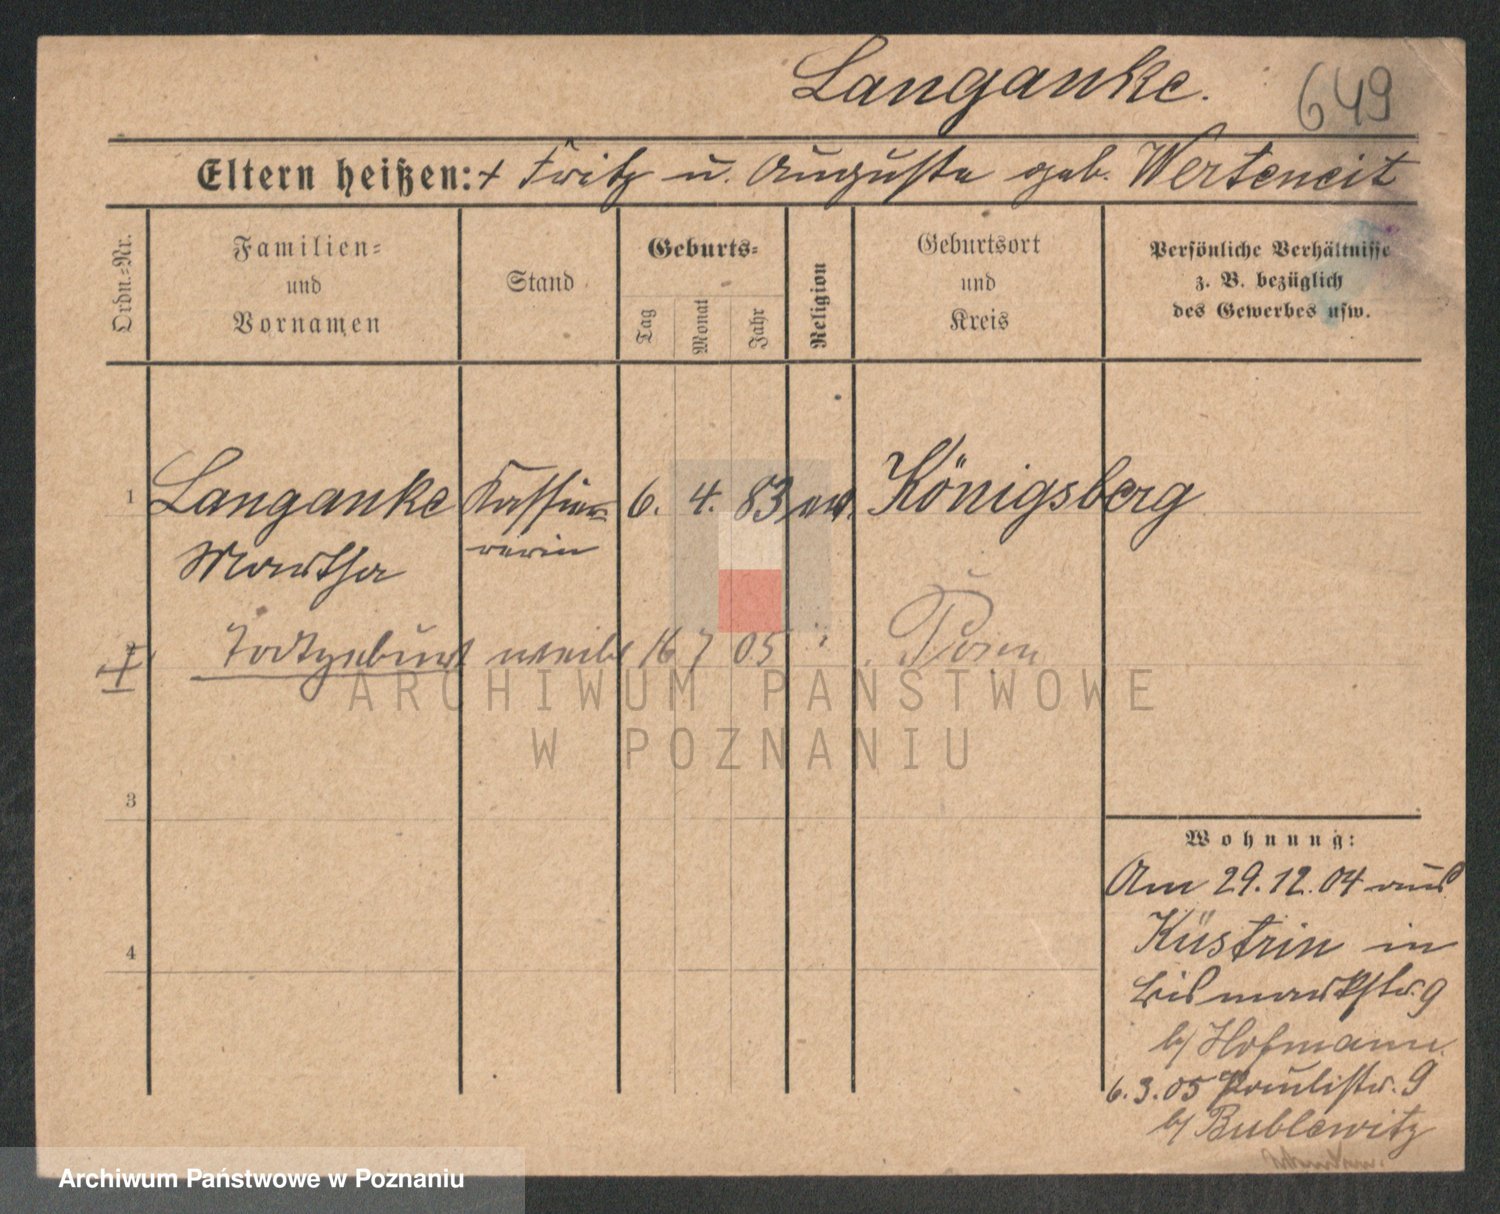 Langanke.
649
Eltern heißen: + Fritz u. Auguste geb. Werteneit
Ordn.-Nr.
Familien- und Vornamen
Stand
Geburts-
Tag
Monat
Jahr
Religion
Geburtsort und Kreis
Persönliche Verhältnisse
z. B. bezüglich
des Gewerbes usw.
1 Langanke Kassire- 6. 4. 83 ev. Königsberg
Martha rerin
2 Todtgeburt weibl 16 7 05 " Posen
ARCHIWUM PAŃSTWOWE
W POZNANIU
3
4
Wohnung:
Am 29.12.04 aus
Küstrin in
Bismarckstr. 9
b/ Hofmann.
6.3.05 Paulistr. 9
b/ Bublewitz
Archiwum Państwowe w Poznaniu